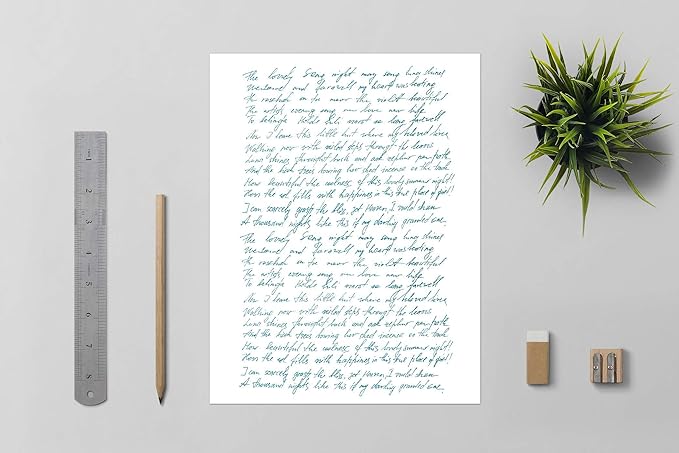 The lovely Song night may song lung shines
Welcome and Farewell my heart was beating
the rosebud on the near the violet beautiful
The artist's evening song love new life
To belinda Holds Lili worst so long farewell
Now I leave this little hut where my beloved lives
Walking now with veiled steps through the leaves
Luna shines through bush and oak zephyr path
And the birch trees bowing low shed incense on the track
How beautiful the coolness of this lovely summer night!
How the soul fills with happiness in this true place of quiet!
I can scarcely grasp the bliss, yet Heaven, I would shun
A thousand nights like this if my darling granted one.
The lovely Song night may song lung shines
Welcome and Farewell my heart was beating
the rosebud on the near the violet beautiful
The artist's evening song love new life
To belinda Holds Lili worst so long farewell
Now I leave this little hut where my beloved lives
Walking now with veiled steps through the leaves
Luna shines through bush and oak zephyr path
And the birch trees bowing low shed incense on the track
How beautiful the coolness of this lovely summer night!
How the soul fills with happiness in this true place of quiet!
I can scarcely grasp the bliss, yet Heaven, I would shun
A thousand nights like this if my darling granted one.
1
2
3
4
5
6
7
8